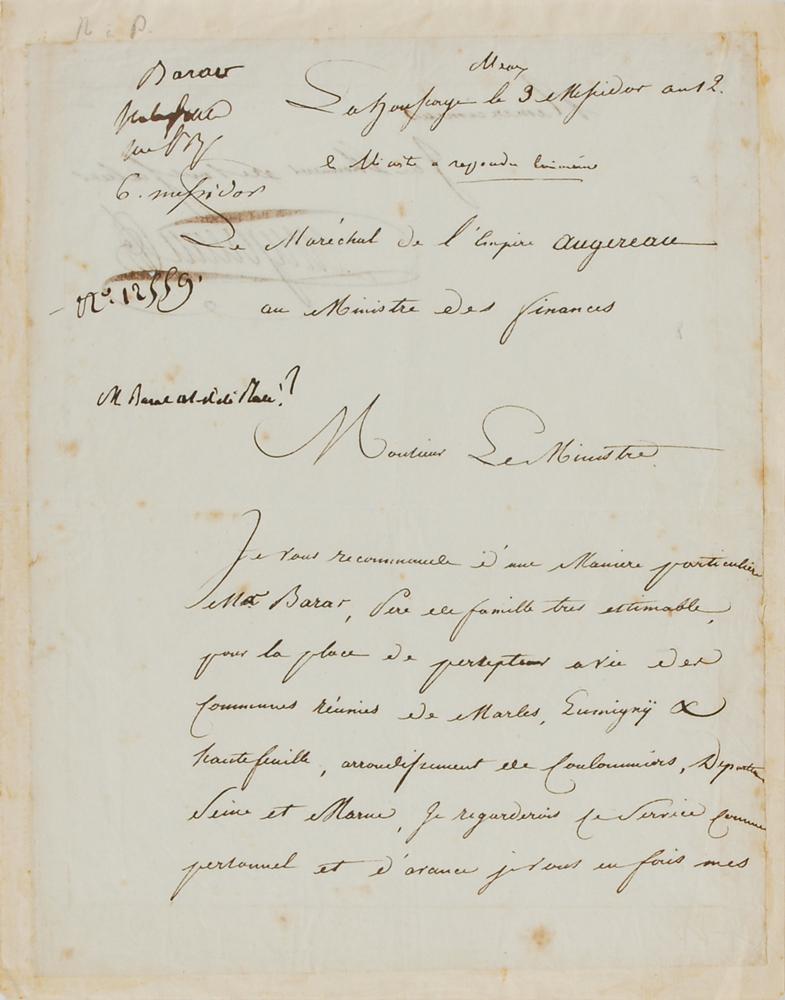 R. i. P.
Barav
6. messidor
N° 12559.
Meaux
La houssaye le 3 Messidor an 12.
le Minte a repondu
Le Maréchal de l'Empire Augereau
au Ministre des finances
M Barat
Monsieur Le Ministre
Je vous recommande d'une Maniere particuliere
Mr Barav, Pere de famille tres estimable,
pour la place de persepteur a vie des
Communes réunies de Marles, Lumignÿ &
hautefeuille, arrondissement de Coulommiers, Departem
Seine et Marne, Je regarderois ce Service comme
personnel et d'avance je vous en fais mes